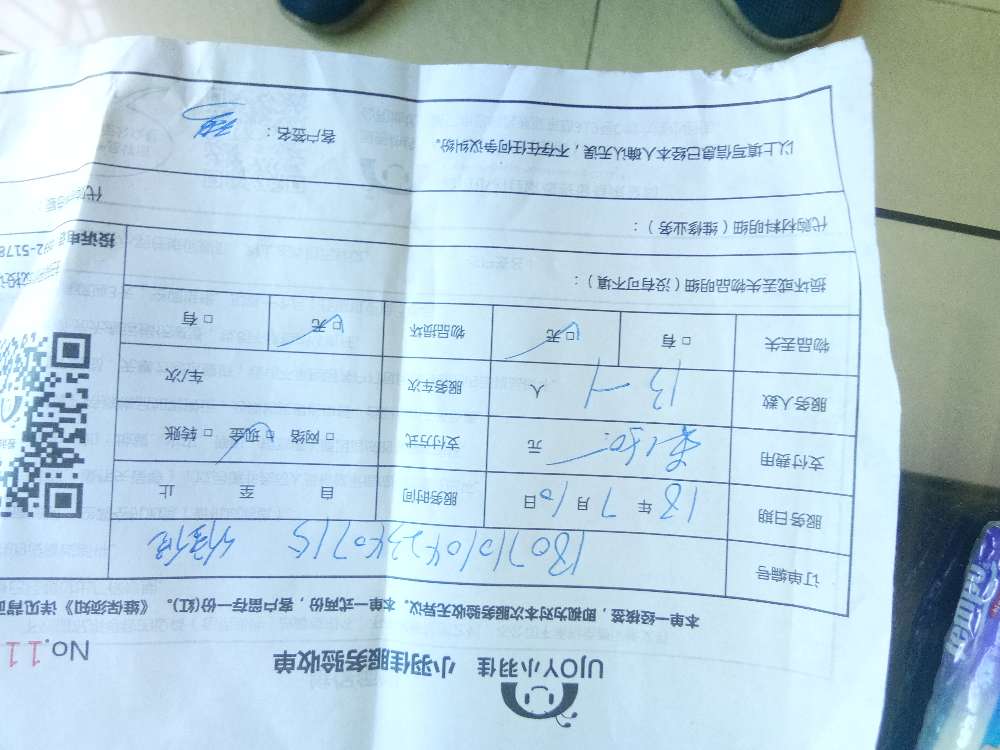 UJOY小羽佳 小羽佳服务验收单
No.11
本单一经核签，即视为对本次服务验收无异议。本单一式两份，客户留存一份(红)。《维保须知》详见背面
订单编号
服务日期 18 年 7 月 10 日 服务时间 自 至 止
支付费用 元 支付方式 □ 网络 □ 现金 □ 转账
服务人数 人 服务车次 车/次
物品丢失 □ 有 □ 无 物品损坏 □ 无 □ 有
损坏或丢失物品明细（没有可不填）：
代购材料明细（维修业务）：
投诉电
92-5178
以上填写信息已经本人确认无误，不存在任何争议纠纷。 客户签名：